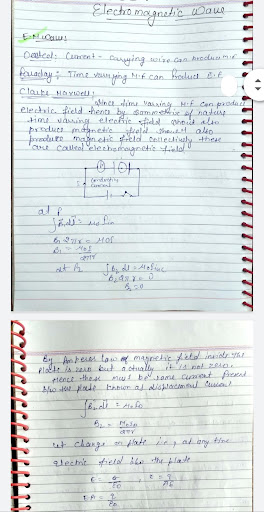 Electromagnetic wave
E.M. waves
Oested: Current - carrying wire can produce M.F
Faraday: Time varrying M.F can Product E.F
Clarks Maxwell:
Since time varring M.F can produce
electric field hence by symmetric of nature
time varying electric field shoud also
produce magnetic field shoud also
produce magnetic field collectively these
are called electromagnetic field
conducting
current
at P
B₁ 2πr = μ₀I
B₁ = μ₀I
2πr
at P₂
B₂ 2πr = 0
B₂ = 0
By Amperes Law of magnetic field inside the
plate is zero but actually it is not zero.
Hence there must be some current Present
b/w the plate known as displacement current
B₂ =
2πr
let change on plate is q at any time
electric field b/w the plate